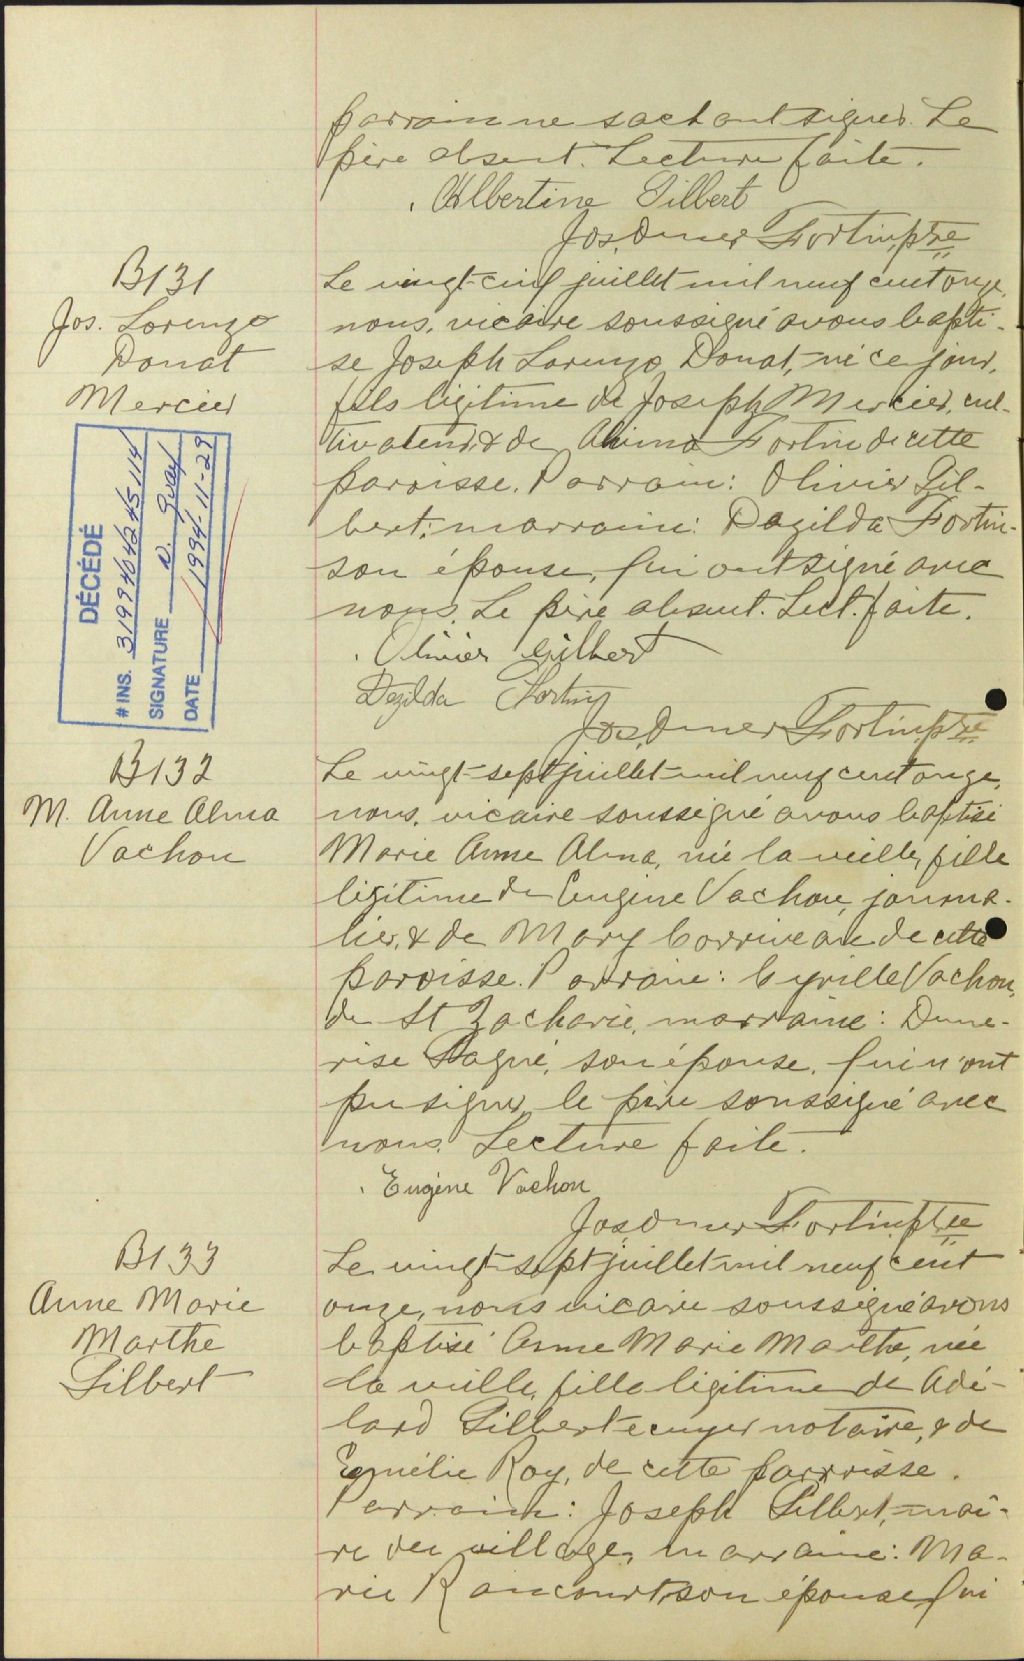 parrain ne sachant signer. Le
père absent. Lecture faite.
Albertine Gilbert
Jos. Omer Fortin, ptre
B131
Jos. Lorenzo
Donat
Mercier
Le vingt-cinq juillet mil neuf cent onze,
nous, vicaire soussigné avons bapti-
se Joseph Lorenzo Donat, né ce jour,
fils légitime de Joseph Mercier, cul-
tivateur, & de Alvina Fortin de cette
paroisse. Parrain: Olivier Gil-
bert; marraine: Dezilda Fortin
son épouse, qui ont signé avec
nous. Le père absent. Lect. faite.
Olivier Gilbert
Dezilda Fortin
Jos. Omer Fortin, ptre
DÉCÉDÉ
# INS. 319940424S114
SIGNATURE
DATE 1994-11-29
B132
M. Anne Alma
Vachon
Le vingt-sept juillet mil neuf cent onze,
nous, vicaire soussigné avons baptisé
Marie Anne Alma, née la veille, fille
légitime de Eugène Vachon, journa-
lier, & de Mary Corriveau de cette
paroisse. Parrain: Cyrille Vachon,
de St Zacharie, marraine: Dame-
rise Gagné, son épouse, qui n'ont
pu signer, le père soussigné avec
nous. Lecture faite.
Eugène Vachon
Jos. Omer Fortin, ptre
B133
Anne Marie
Marthe
Gilbert
Le vingt-sept juillet mil neuf cent
onze, nous vicaire soussigné avons
baptisé Anne Marie Marthe, née
la veille, fille légitime de Adé-
lard Gilbert ecuyer notaire, & de
Esmélie Roy, de cette parroisse.
Parrain: Joseph Gilbert, mai-
re du village, marraine: Ma-
rie Rancourt, son épouse, qui